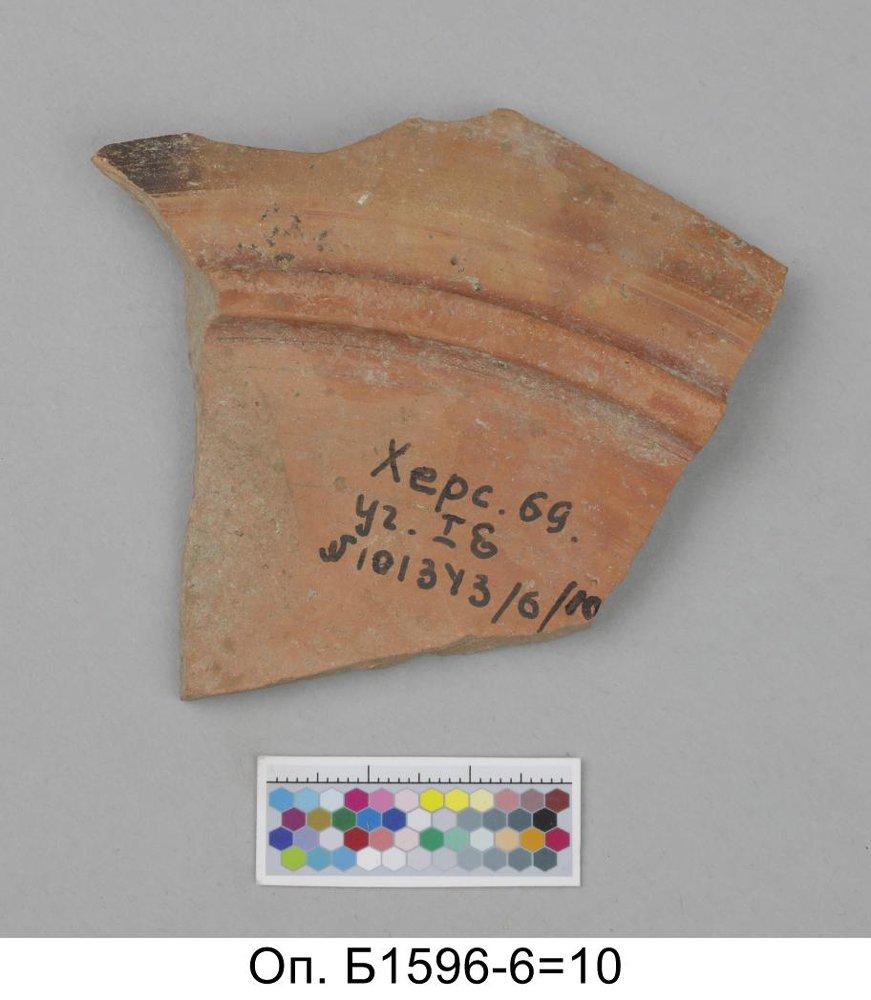 Херс. 69.
уг. IБ
№101343/6/10
Оп. Б1596-6=10